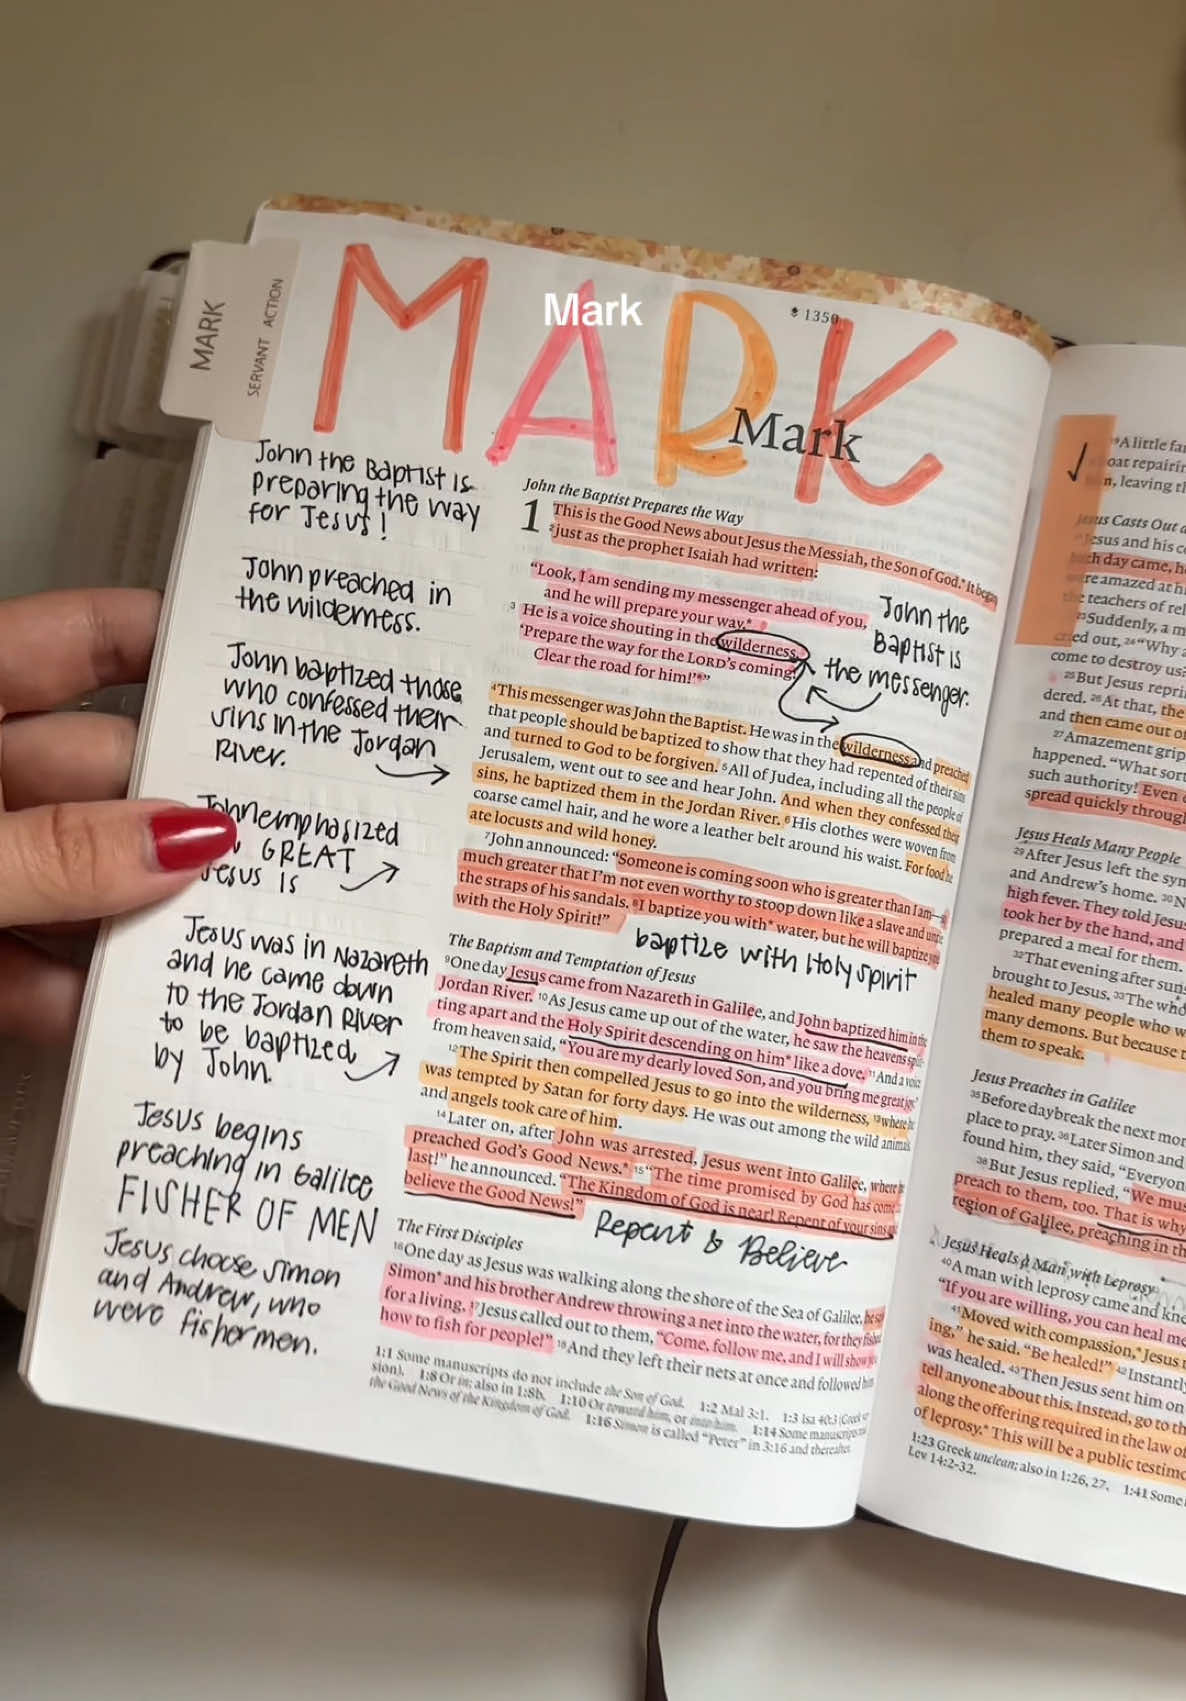 MARK
Mark
1350
MARK
SERVANT ACTION
Mark
John the Baptist is
preparing the way
for Jesus!
John preached in
the wilderness.
John baptized those
who confessed their
sins in the Jordan
River.
John emphasized
GREAT
Jesus is
Jesus was in Nazareth
and he came down
to the Jordan River
to be baptized
by John.
Jesus begins
preaching in Galilee
FISHER OF MEN
Jesus choose Simon
and Andrew, who
were fishermen.
John the Baptist Prepares the Way
1 This is the Good News about Jesus the Messiah, the Son of God.* It began
2just as the prophet Isaiah had written:
“Look, I am sending my messenger ahead of you,
and he will prepare your way.*
3 He is a voice shouting in the wilderness,
‘Prepare the way for the LORD’s coming!
Clear the road for him!’*”
John the
Baptist is
the messenger.
4This messenger was John the Baptist. He was in the wilderness and preached
that people should be baptized to show that they had repented of their sins
and turned to God to be forgiven. 5All of Judea, including all the people of
Jerusalem, went out to see and hear John. And when they confessed their
sins, he baptized them in the Jordan River. 6His clothes were woven from
coarse camel hair, and he wore a leather belt around his waist. For food he
ate locusts and wild honey.
7John announced: “Someone is coming soon who is greater than I am—
much greater that I’m not even worthy to stoop down like a slave and untie
the straps of his sandals. 8I baptize you with* water, but he will baptize you
with the Holy Spirit!”
baptize with Holy Spirit
The Baptism and Temptation of Jesus
9One day Jesus came from Nazareth in Galilee, and John baptized him in the
Jordan River. 10As Jesus came up out of the water, he saw the heavens split-
ting apart and the Holy Spirit descending on him* like a dove. 11And a voice
from heaven said, “You are my dearly loved Son, and you bring me great joy.”
12The Spirit then compelled Jesus to go into the wilderness, 13where he
was tempted by Satan for forty days. He was out among the wild animals
and angels took care of him.
14Later on, after John was arrested, Jesus went into Galilee, where he
preached God’s Good News.* 15“The time promised by God has come
last!” he announced. “The Kingdom of God is near! Repent of your sins and
believe the Good News!”
Repent & Believe
The First Disciples
16One day as Jesus was walking along the shore of the Sea of Galilee, he saw
Simon* and his brother Andrew throwing a net into the water, for they fished
for a living. 17Jesus called out to them, “Come, follow me, and I will show you
how to fish for people!” 18And they left their nets at once and followed him
1:1 Some manuscripts do not include the Son of God. 1:2 Mal 3:1. 1:3 Isa 40:3 (Greek
sion). 1:8 Or in; also in 1:8b. 1:10 Or toward him, or into him. 1:14 Some manuscripts
the Good News of the Kingdom of God. 1:16 Simon is called “Peter” in 3:16 and thereafter.
19A little
oat repairin
n, leaving
Jesus Casts Out
Jesus and his
ch day came,
were amazed at
the teachers of
23Suddenly, a
cried out, 24“Why
come to destroy us?
25But Jesus
dered. 26At that, the
and then came out
27Amazement
happened. “What
such authority! Even
spread quickly
Jesus Heals Many People
29After Jesus left the
and Andrew’s home.
high fever. They told Jesus
took her by the hand, and
prepared a meal for them.
32That evening after
brought to Jesus. 33The
healed many people who
many demons. But because
them to speak.
Jesus Preaches in Galilee
35Before daybreak the next
place to pray. 36Later Simon and
found him, they said, “Everyone
38But Jesus replied, “We
preach to them, too. That is why
region of Galilee, preaching in
Jesus Heals a Man with Leprosy
40A man with leprosy came and
“If you are willing, you can heal
41Moved with compassion,* Jesus
ing,” he said. “Be healed!” 42Instantly
was healed. 43Then Jesus sent him on
tell anyone about this. Instead, go to
along the offering required in the law of
of leprosy.* This will be a public
1:23 Greek unclean; also in 1:26, 27. 1:41 Some
Lev 14:2-32.